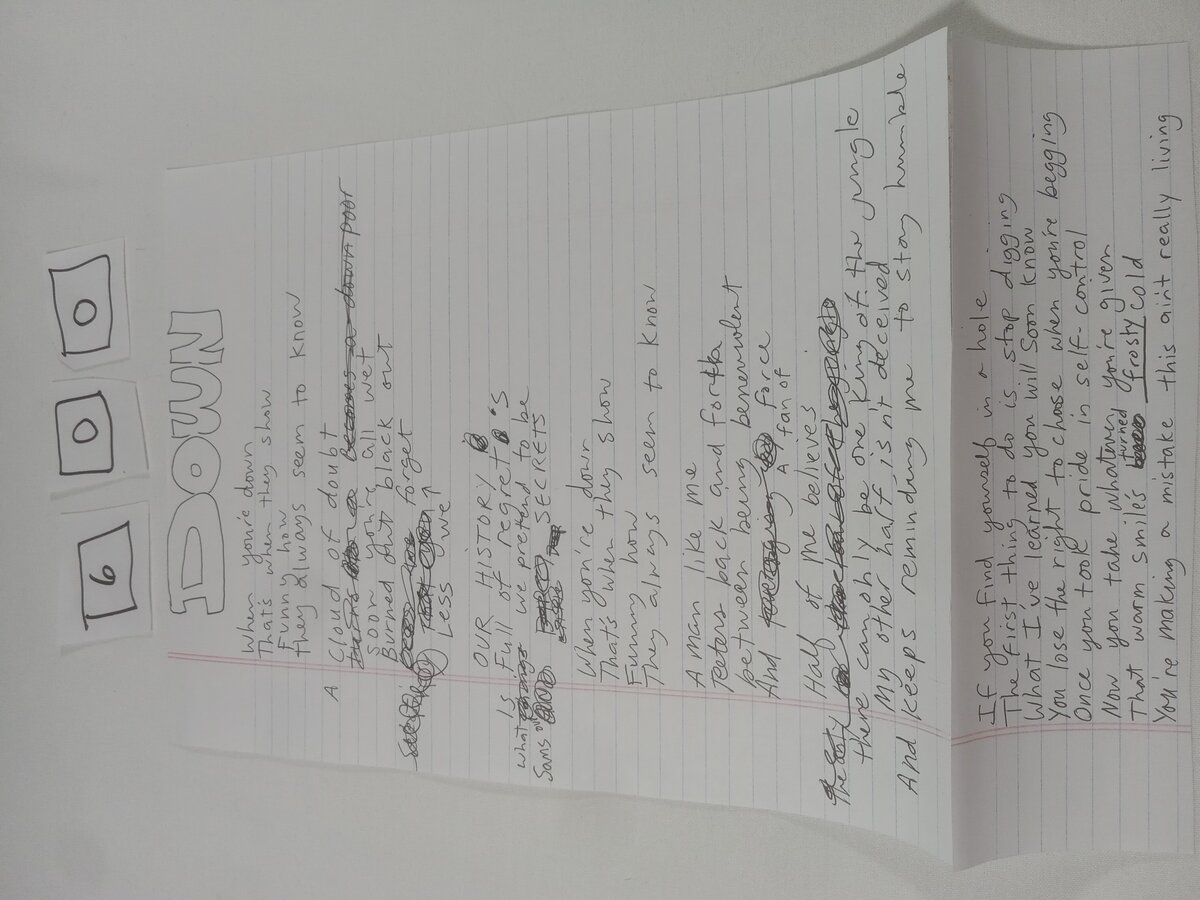 6 0 0
DOWN
When you're down
That's when they show
Funny how
They always seem to know
A Cloud of doubt
becomes a down poor
Soon you're all wet
Burned out black out
forget
Less we
OUR HISTORY
IS Full of regret's
what we pretend to be
Sams SECRETS
When you're down
That's when they show
Funny how
They always seem to know
A man like me
Teeters back and forth
between being benevolent
And A fan of force
Half of me believes
there can only be one King of the jungle
My other half isn't deceived
And keeps reminding me to stay humble
If you find yourself in a hole
The first thing to do is stop digging
What I've learned you will soon know
You lose the right to choose when you're begging
Once you took pride in self-control
Now you take whatever you're given
That warm smile's turned frosty cold
You're making a mistake this ain't really living